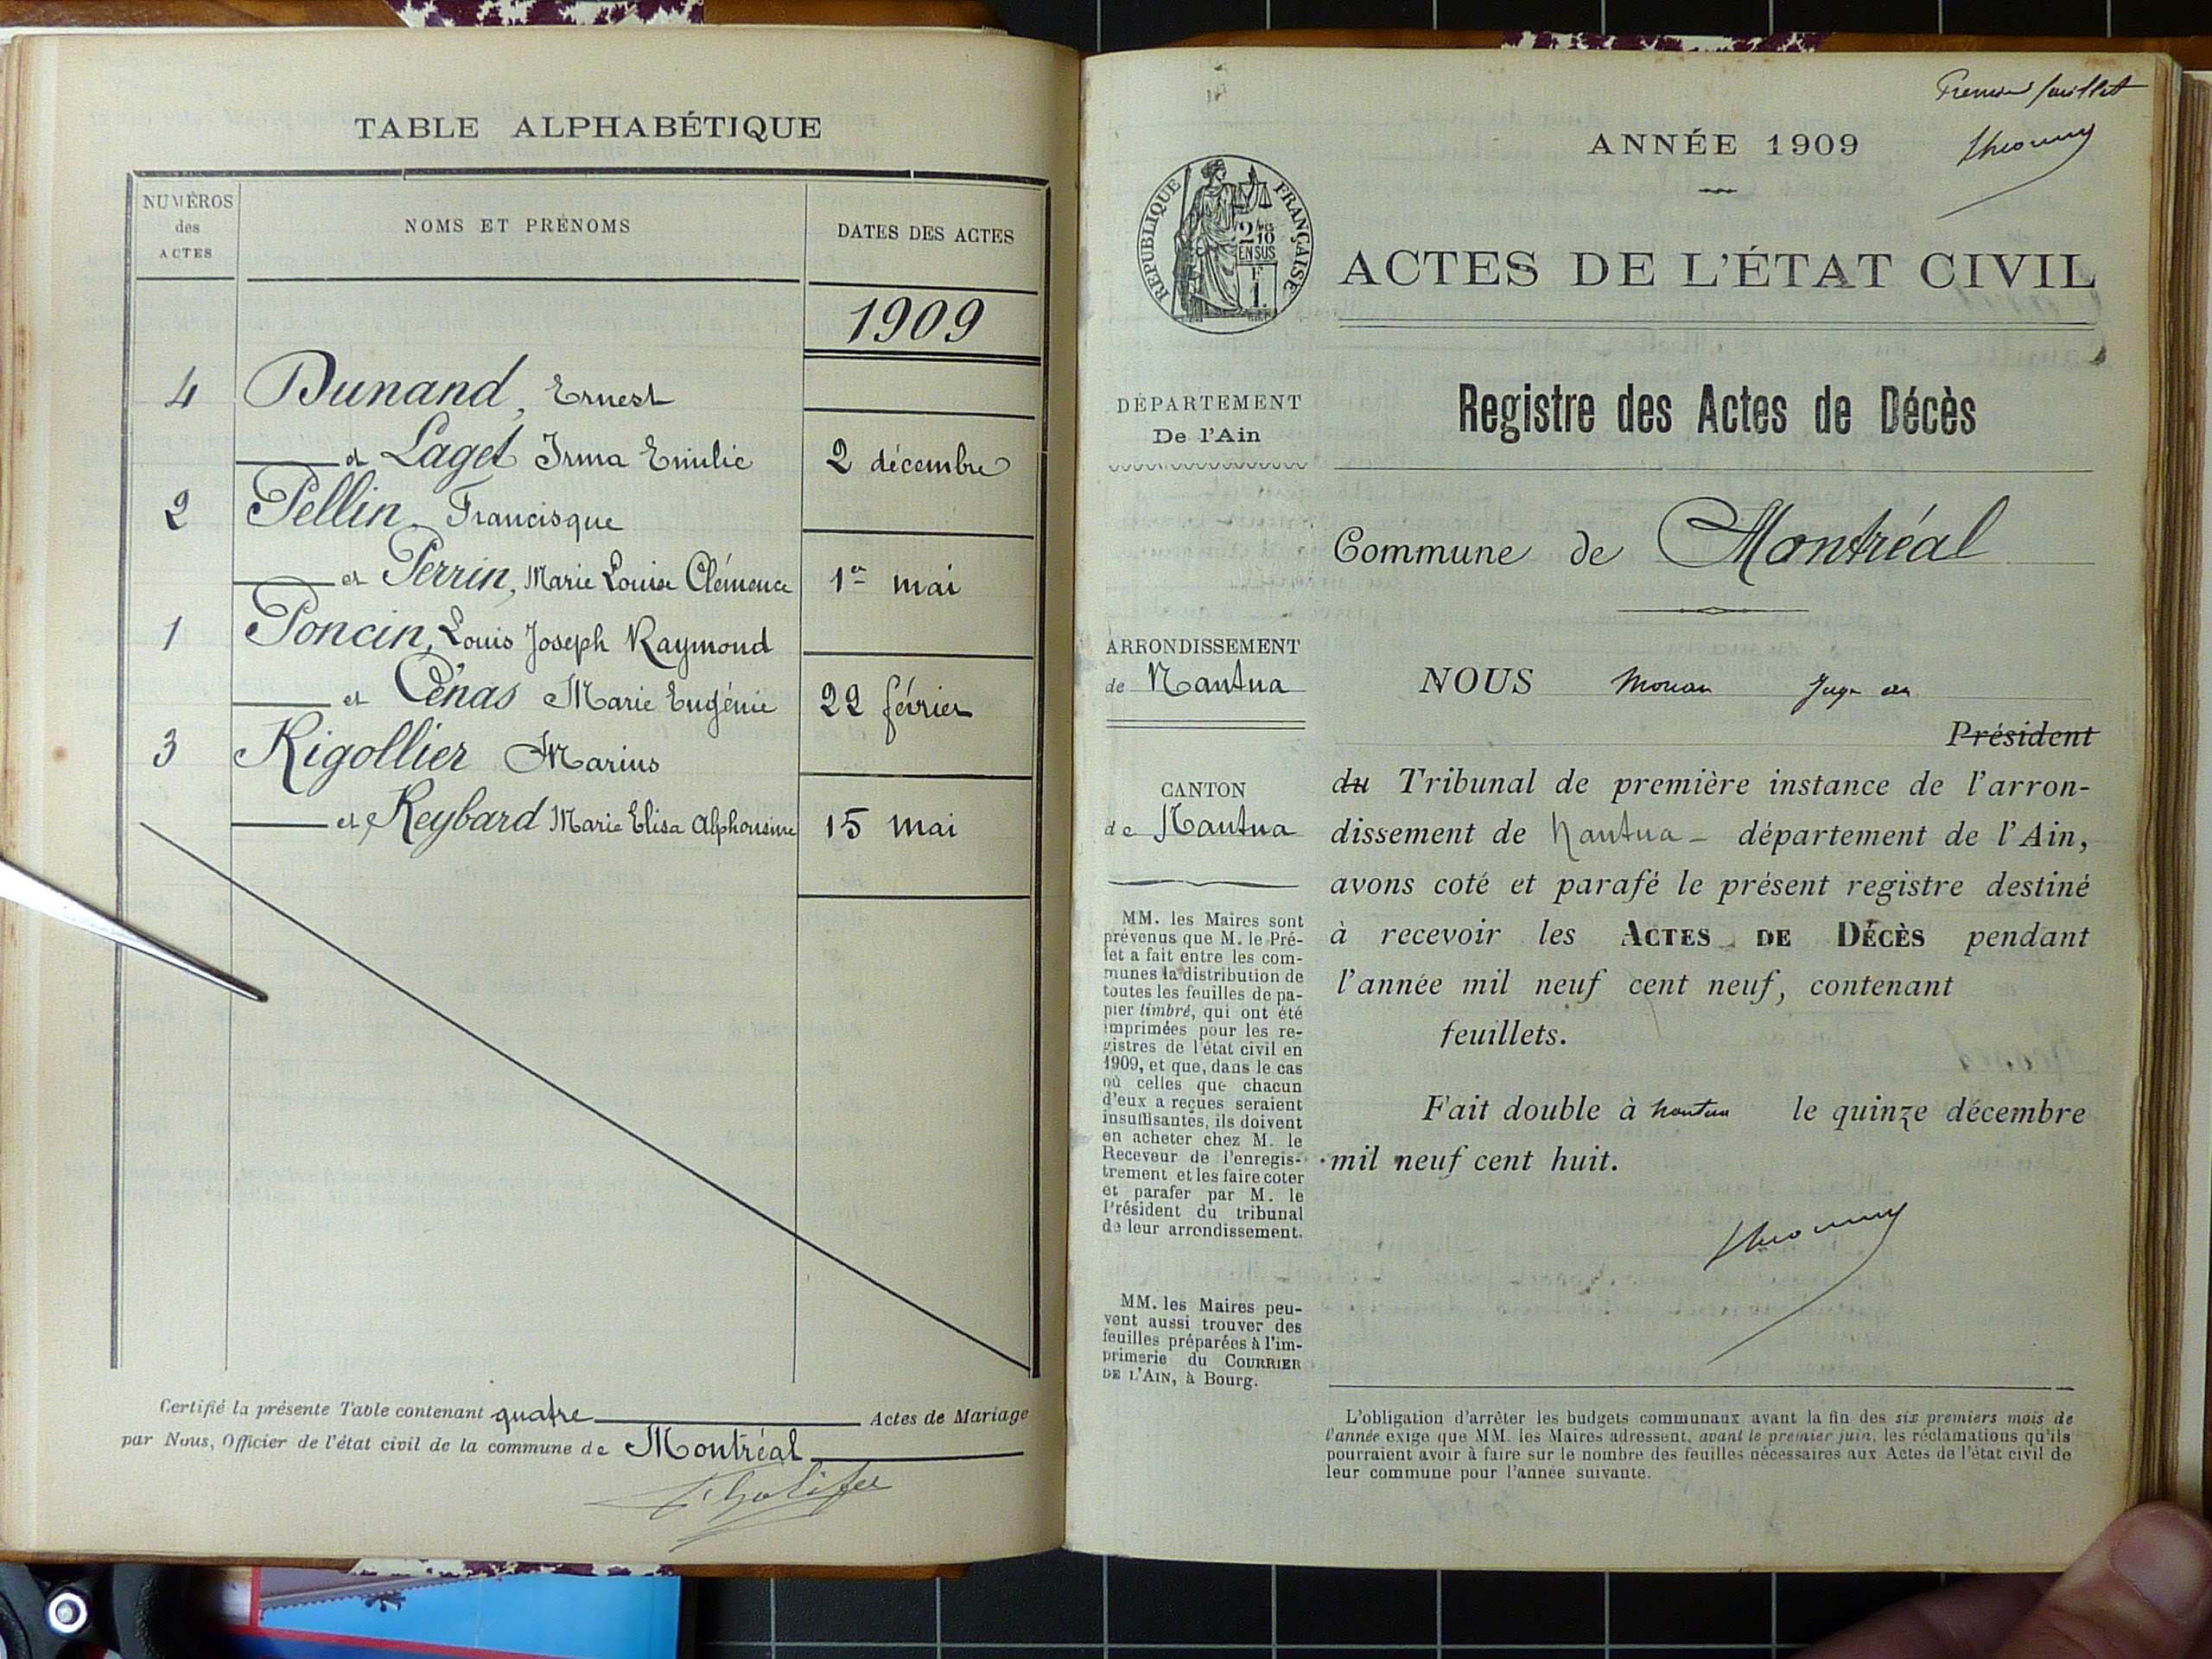 TABLE ALPHABÉTIQUE
NUMÉROS
des
ACTES
NOMS ET PRÉNOMS
DATES DES ACTES
1909
4 Dunand, Ernest
et Laget Irma Emilie 2 décembre
2 Pellin, Francisque
et Perrin, Marie Louise Clémence 1er mai
1 Poncin, Louis Joseph Raymond
et Cénas Marie Eugénie 22 février
3 Rigollier Marius
et Reybard Marie Elisa Alphonsine 15 mai
Certifié la présente Table contenant quatre Actes de Mariage
par Nous, Officier de l'état civil de la commune de Montréal
Premier feuillet
ANNÉE 1909
RÉPUBLIQUE FRANÇAISE
2/10
EN SUS
F
1.
ACTES DE L'ÉTAT CIVIL
DÉPARTEMENT
De l'Ain
Registre des Actes de Décès
Commune de Montréal
ARRONDISSEMENT
de Nantua
CANTON
de Nantua
MM. les Maires sont
prévenus que M. le Pré-
fet a fait entre les com-
munes la distribution de
toutes les feuilles de pa-
pier timbré, qui ont été
imprimées pour les re-
gistres de l'état civil en
1909, et que, dans le cas
où celles que chacun
d'eux a reçues seraient
insuffisantes, ils doivent
en acheter chez M. le
Receveur de l'enregis-
trement et les faire coter
et parafer par M. le
Président du tribunal
de leur arrondissement.
MM. les Maires peu-
vent aussi trouver des
feuilles préparées à l'im-
primerie du COURRIER
DE L'AIN, à Bourg.
NOUS Juge au
Président
du Tribunal de première instance de l'arron-
dissement de Nantua - département de l'Ain,
avons coté et parafé le présent registre destiné
à recevoir les ACTES DE DÉCÈS pendant
l'année mil neuf cent neuf, contenant
feuillets.
Fait double à Nantua le quinze décembre
mil neuf cent huit.
L'obligation d'arrêter les budgets communaux avant la fin des six premiers mois de
l'année exige que MM. les Maires adressent, avant le premier juin, les réclamations qu'ils
pourraient avoir à faire sur le nombre des feuilles nécessaires aux Actes de l'état civil de
leur commune pour l'année suivante.